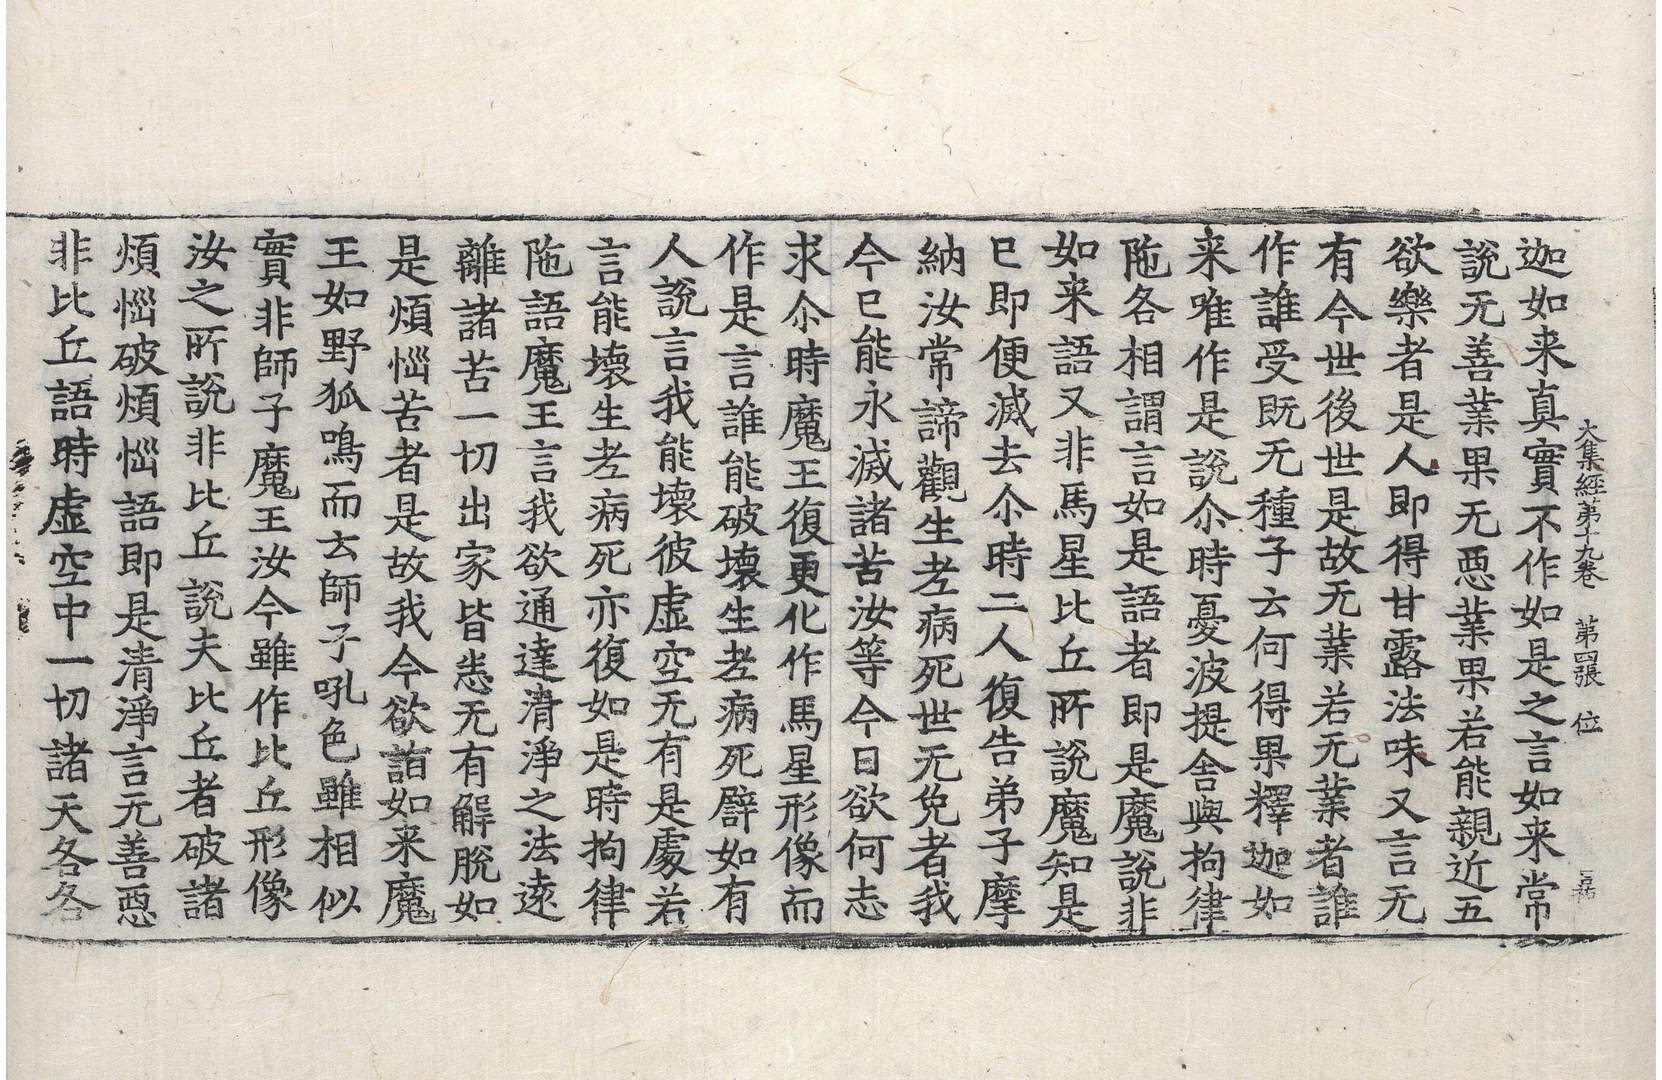 大集經第十九卷 第四張 位
迦如来真實不作如是之言如来常
說无善業果无惡業果若能親近五
欲樂者是人即得甘露法味又言无
有今世後世是故无業若无業者誰
作誰受既无種子云何得果釋迦如
来唯作是說尒時憂波提舍與拘律
陁各相謂言如是語者即是魔說非
如来語又非馬星比丘所說魔知是
已即便滅去尒時二人復告弟子摩
納汝常諦觀生老病死世无免者我
今已能永滅諸苦汝等今日欲何志
求尒時魔王復更化作馬星形像而
作是言誰能破壞生老病死譬如有
人說言我能壞彼虛空无有是處若
言能壞生老病死亦復如是時拘律
陁語魔王言我欲通達清淨之法遠
離諸苦一切出家皆悉无有解脫如
是煩惱苦者是故我今欲詣如来魔
王如野狐鳴而云師子吼色雖相似
實非師子魔王汝今雖作比丘形像
汝之所說非比丘說夫比丘者破諸
煩惱破煩惱語即是清淨言无善惡
非比丘語時虛空中一切諸天各各